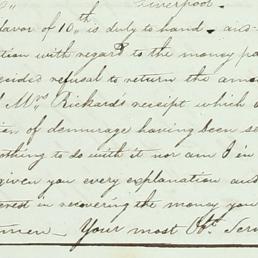 Liverpool.
favor of 10th is duty to hand - and
tion with regard to the money pa
cided refusal to return the amo
Mrs Rickards receipt which
of demurrage having been se
othing to do with it nor am I in
given you every explanation and
erest in recovering the money you
men - Your most Obt. Serv